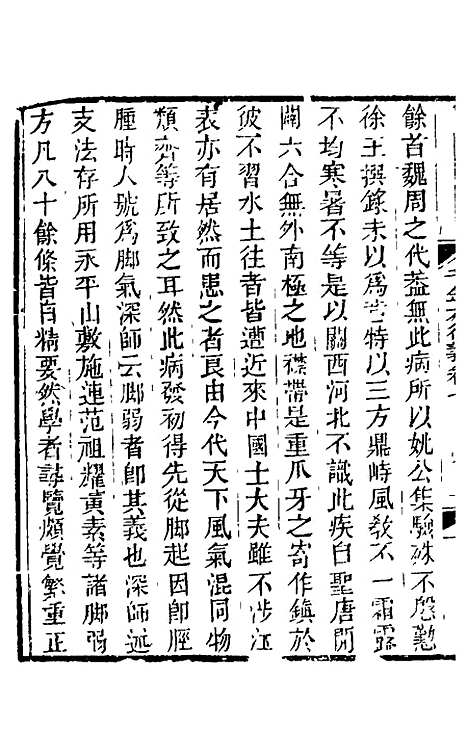 餘首魏周之代葢無此病所以姚公集驗殊不慇懃
徐王撰錄未以爲意特以三方鼎峙風敎不一霜露
不均寒暑不等是以關西河北不識此疾自聖唐開
闢六合無外南極之地襟帶是重爪牙之寄作鎮於
彼不習水土往者皆遭近來中國士大夫雖不涉江
表亦有居然而患之者良由今代天下風氣混同物
類齊等所致之耳然此病發初得先從脚起因卽脛
腫時人號爲脚氣深師云脚弱者卽其義也深師述
支法存所用永平山敷施連范祖耀黃素等諸脚弱
方凡八十餘條皆是精要然學者尋覽頗覺繁重正